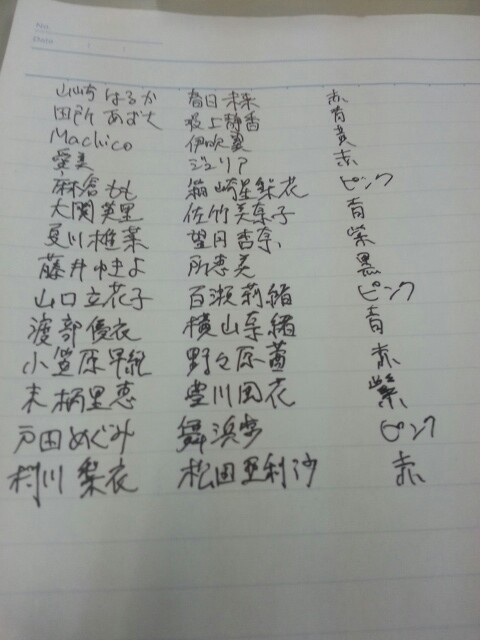 No.
Date
山崎はるか 春日未来 赤
田所あずさ 最上静香 青
Machico 伊吹翼 黄
愛美 ジュリア 赤
麻倉もも 箱崎星梨花 ピンク
大関英里 佐竹美奈子 青
夏川椎菜 望月杏奈 紫
藤井ゆきよ 所恵美 黒
山口立花子 百瀬莉緒 ピンク
渡部優衣 横山奈緒 青
小笠原早紀 野々原茜 赤
末柄里恵 豊川風花 紫
戸田めぐみ 舞浜歩 ピンク
村川梨衣 松田亜利沙 赤